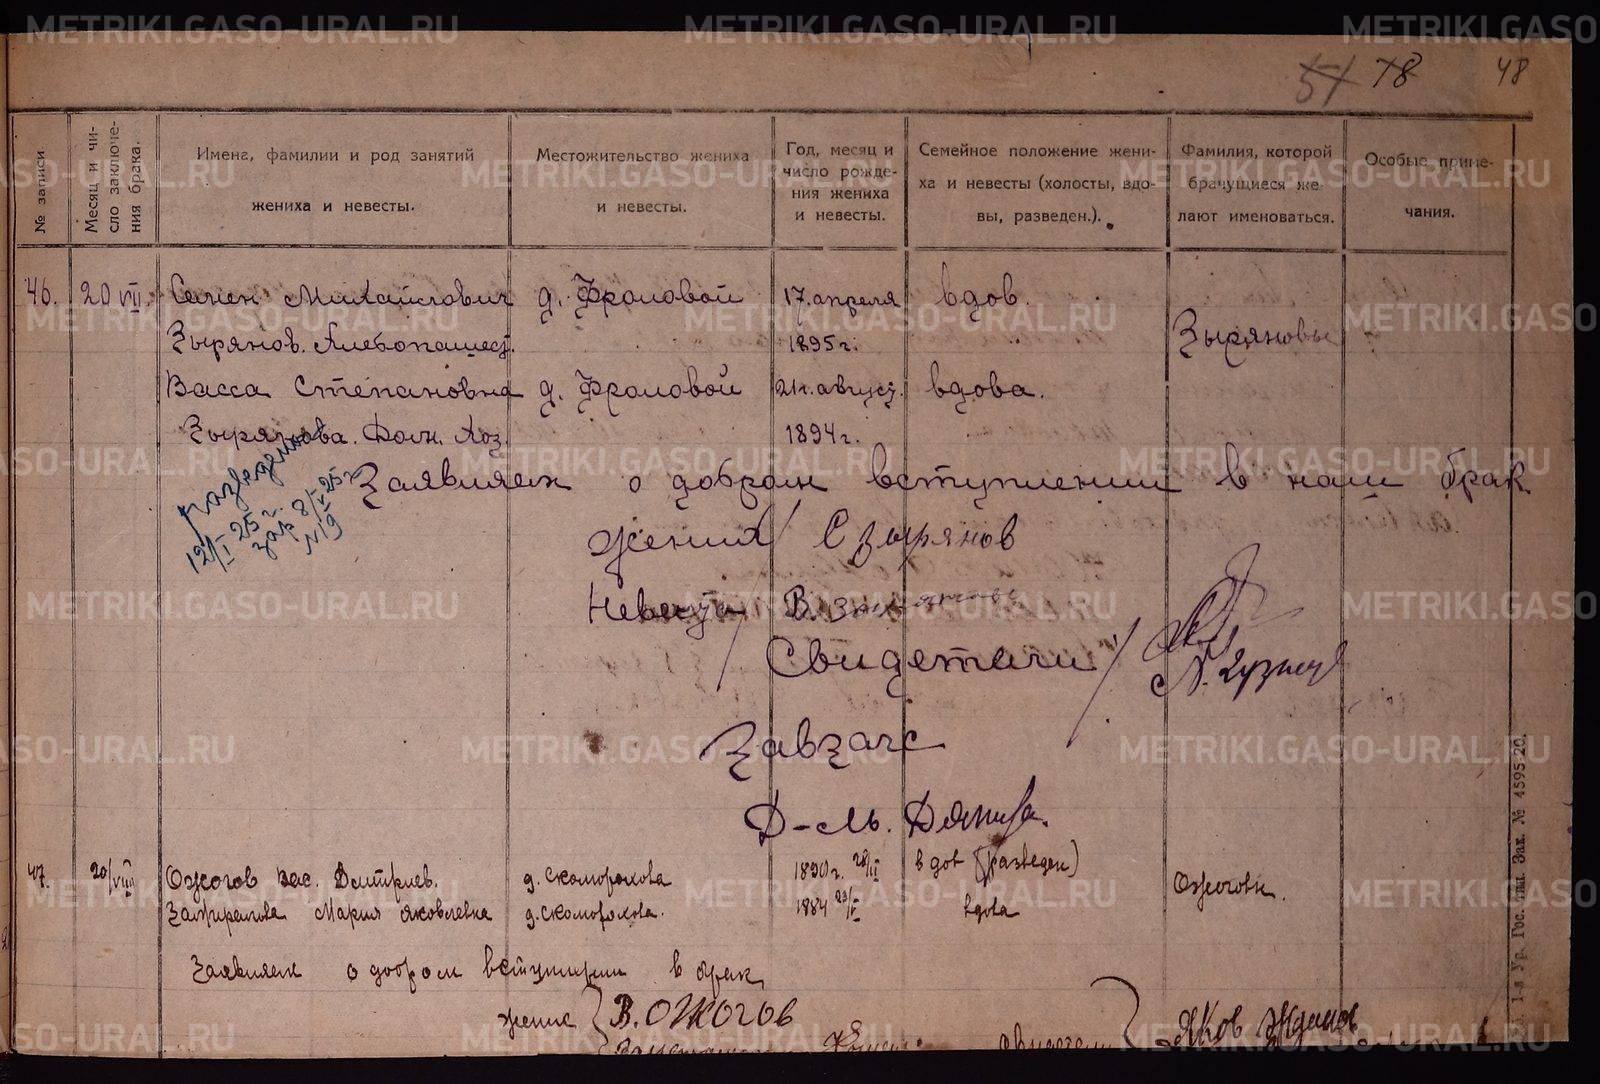 57 78 48
№ записи
Месяц и чи-
сло заключе-
ния брака.
Имена, фамилии и род занятий
жениха и невесты.
Местожительство жениха
и невесты.
Год, месяц и
число рожде-
ния жениха
и невесты.
Семейное положение жени-
ха и невесты (холосты, вдо-
вы, разведен.).
Фамилия, которой
брачущиеся же-
лают именоваться.
Особые приме-
чания.
46. 20 VII. Семен Михайлович д. Фроловой 17. апреля вдов.
Зырянов. Хлебопашест. 1895 г. Зыряновы
Васса Степановна д. Фроловой 24. август. вдова.
Зырянова. Дом. Хоз. 1894 г.
разведен
12/I 25 г.
зап 8/V 25 г
N 19
Заявляем о добром вступлении в наш брак
жених / С Зырянов
Невеста / В. Зырянова
Свидетели /
Завзагс
Д-ль.
47. 20/VIII Ожогов Вас. Дмитриев. д. Скоморохова 1890 г. 28/II вдов (разведен) Ожоговы.
Мария Яковлевна д. Скоморохова. 1884 23/I вдова
Заявляем о добром вступлении в брак
жених В. ОЖОГОВ Яков Жданов
свидетели
1-я Ур. Гос. тип. Зак. № 4595-20.
METRIKI.GASO-URAL.RU